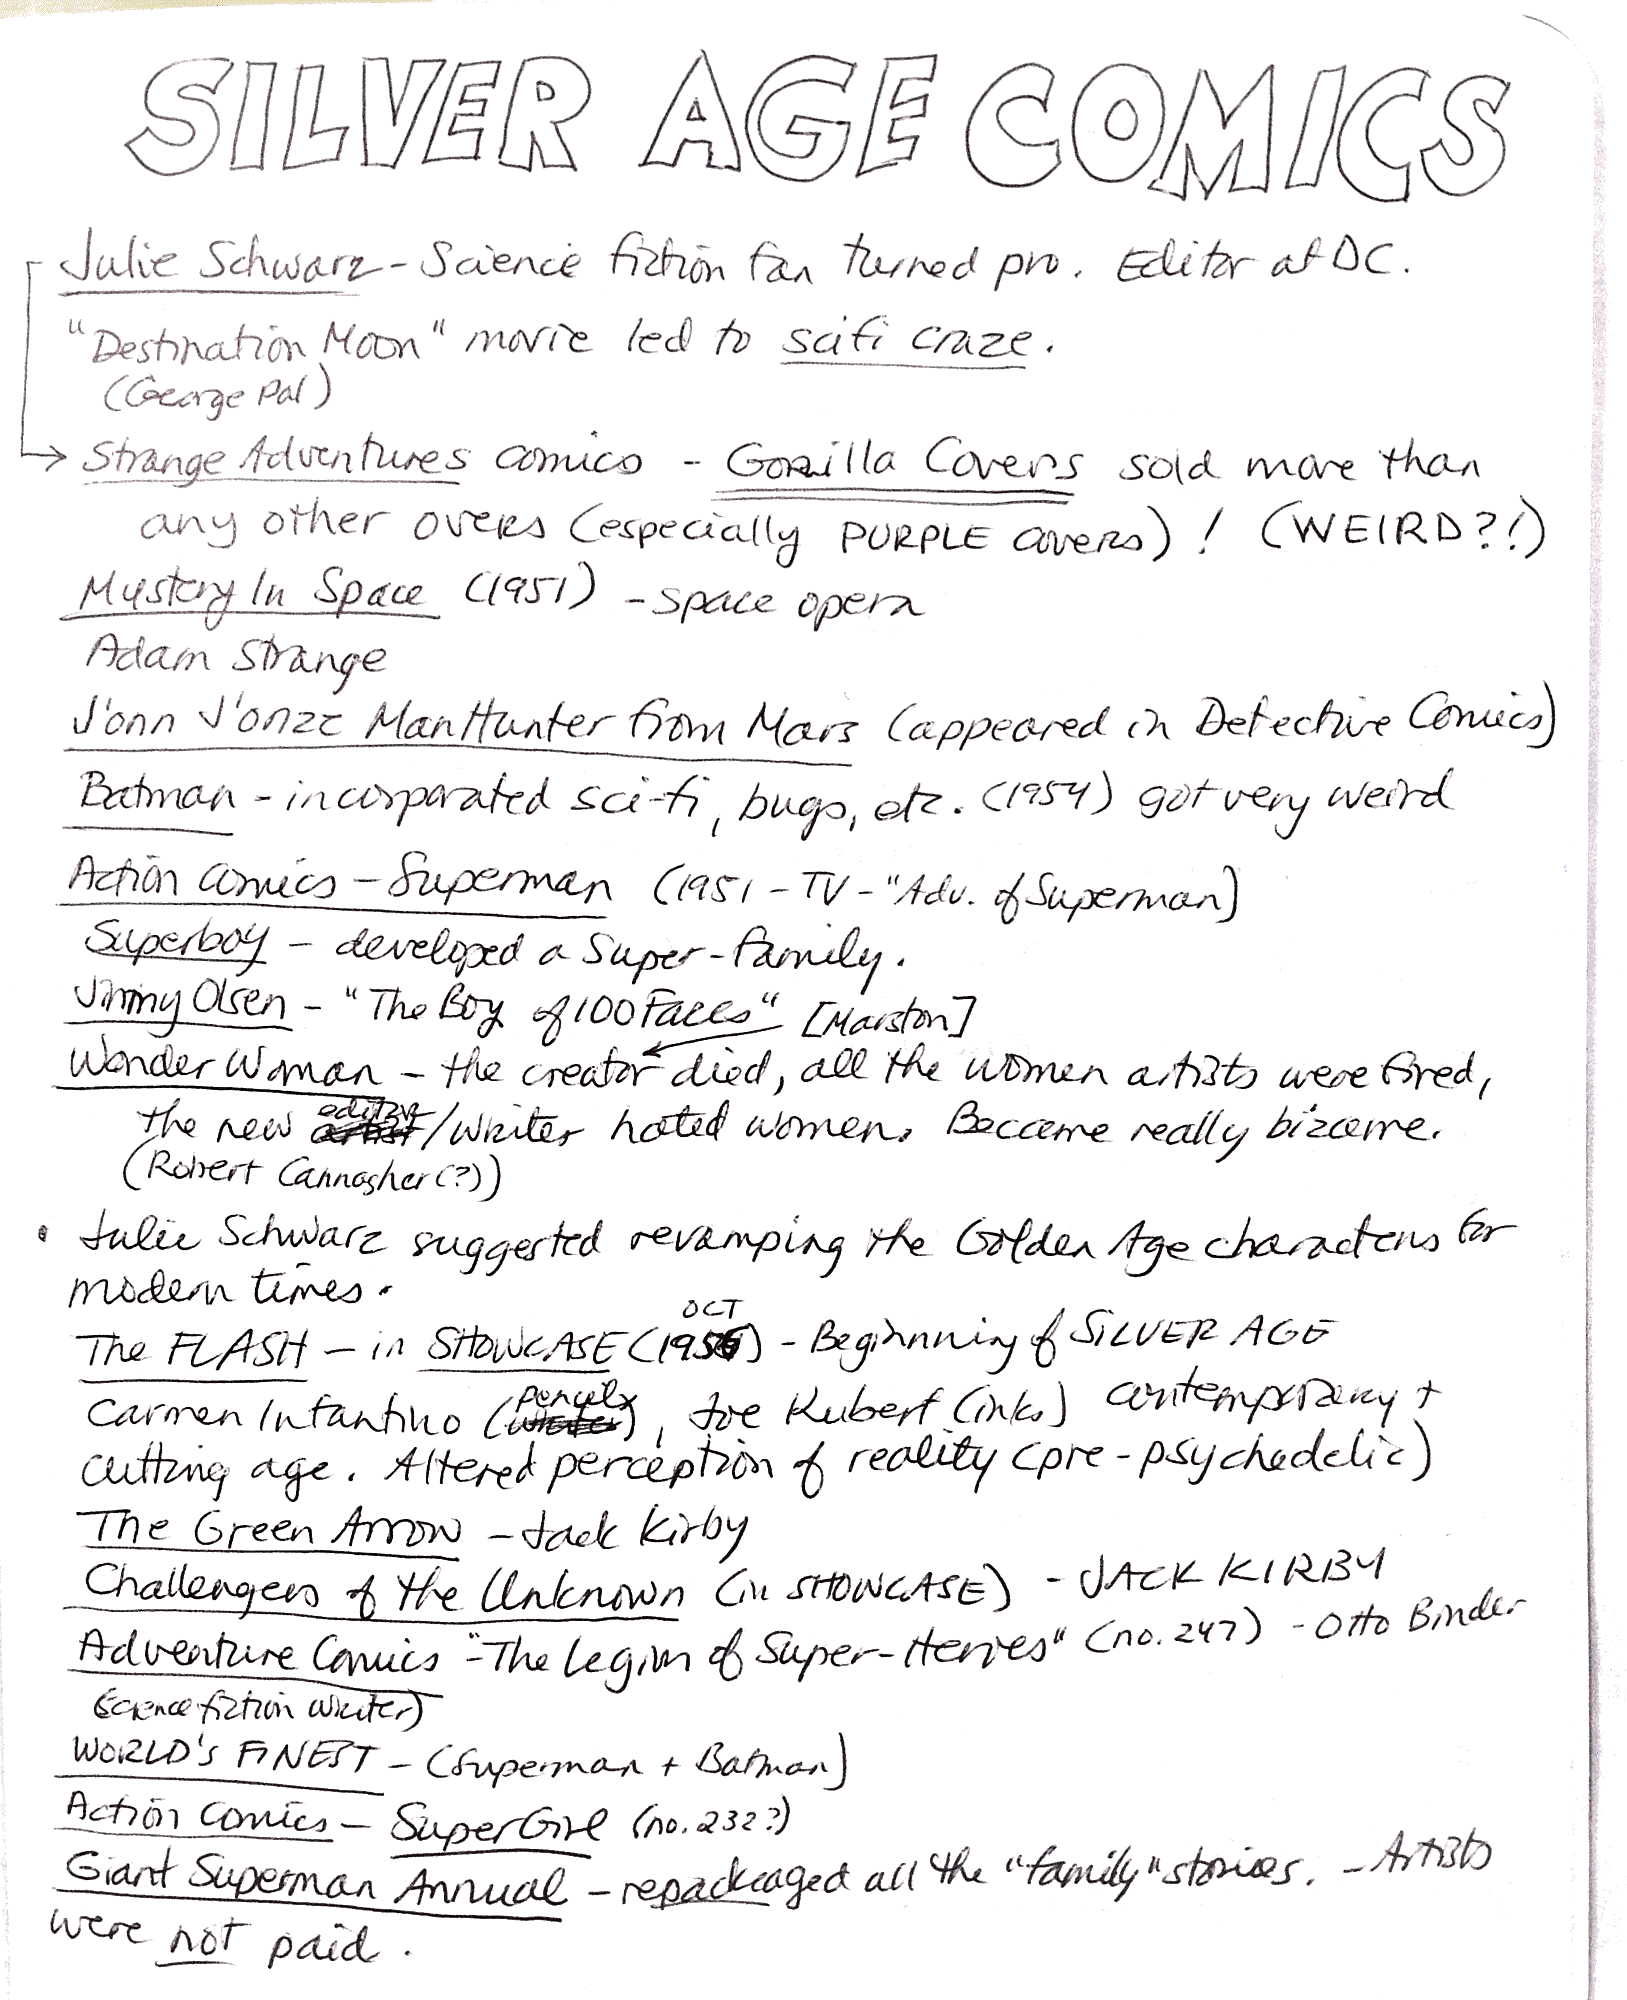 SILVER AGE COMICS
Julie Schwarz - Science fiction fan turned pro. Editor at DC.
"Destination Moon" movie led to scifi craze.
(George Pal)
Strange Adventures comics - Gorilla Covers sold more than
any other overs (especially PURPLE covers)! (WEIRD?!)
Mystery In Space (1951) - space opera
Adam Strange
J'onn J'onzz ManHunter from Mars (appeared in Detective Comics)
Batman - incorporated sci-fi, bugs, etc. (1954) got very weird
Action Comics - Superman (1951 - TV - "Adv. of Superman)
Superboy - developed a Super-family.
Jimmy Olsen - "The Boy of 100 Faces" [Marston]
Wonder Woman - the creator died, all the women artists were fired,
the new editor/writer hated women. Became really bizarre.
(Robert Cannagher(?))
• Julie Schwarz suggested revamping the Golden Age characters for
modern times.
OCT
The FLASH - in SHOWCASE (1956) - Beginning of SILVER AGE
Carmen Infantino (pencils), Joe Kubert (inks) contemporary +
cutting age. Altered perception of reality (pre-psychedelic)
The Green Arrow - Jack Kirby
Challengers of the Unknown (in SHOWCASE) - JACK KIRBY
Adventure Comics - "The Legion of Super-Heroes" (no. 247) - Otto Binder
(Science fiction writer)
WORLD'S FINEST - (Superman + Batman)
Action Comics - SuperGirl (no. 232?)
Giant Superman Annual - repackaged all the "family" stories. - Artists
were not paid.